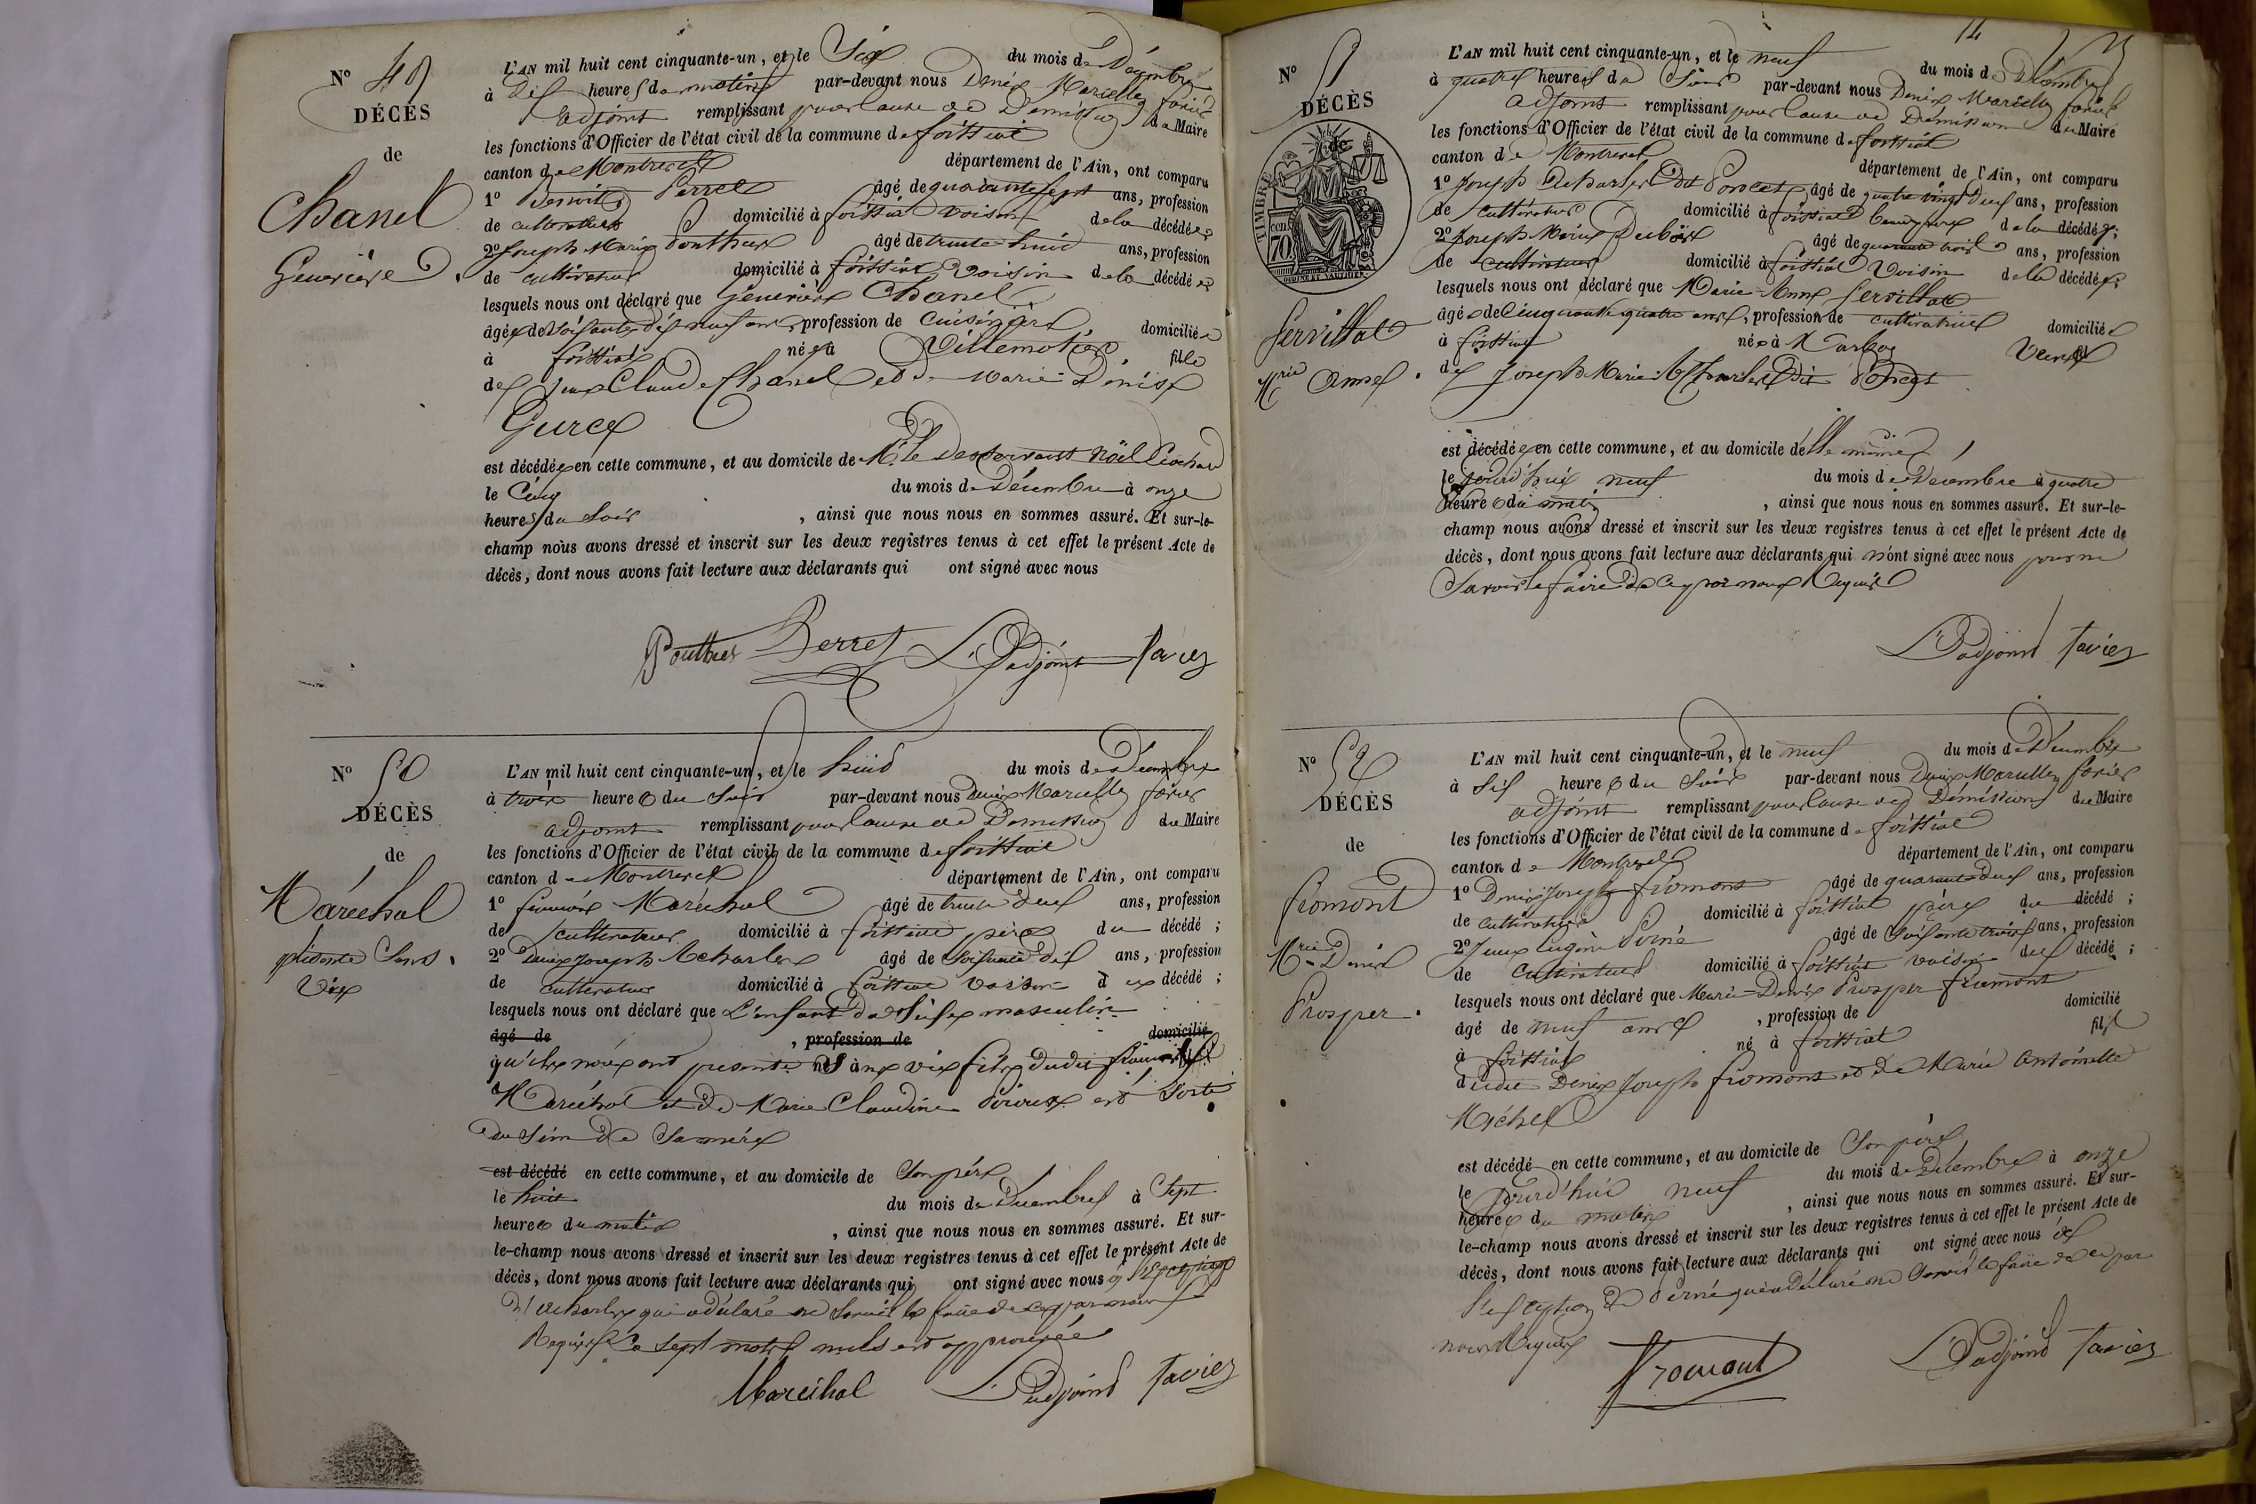 Nº 49
DÉCÈS
de
Chanel
Geneviève
L'AN mil huit cent cinquante-un, et le Six du mois de Décembre
à dix heures du matin par-devant nous Denis Marcellin favier
adjoint remplissant pour cause de Démission du Maire
les fonctions d'Officier de l'état civil de la commune de foissiat
canton de Montrevel département de l'Ain, ont comparu
1º Benoit Perret âgé de quarante sept ans, profession
de cultivateur domicilié à foissiat voisin de la décédée
2º Joseph Marie Pouthier âgé de trente huit ans, profession
de cultivateur domicilié à foissiat Voisin de la décédée
lesquels nous ont déclaré que Geneviève Chanel
âgée de soisante dix neuf ans, profession de Cuisinière domiciliée
à foissiat née à Villemotier fille
de Jean Claude Chanel et de Marie Denise
Gurce
est décédée en cette commune, et au domicile de Mr. le Desservant Noël
le Cinq du mois de Décembre à onze
heures du Soir , ainsi que nous nous en sommes assuré. Et sur-le-
champ nous avons dressé et inscrit sur les deux registres tenus à cet effet le présent Acte de
décès, dont nous avons fait lecture aux déclarants qui ont signé avec nous
Pouthier Perret L'adjoint favier
Nº 50
DÉCÈS
de
Maréchal
présenté Sans
Vie
L'AN mil huit cent cinquante-un, et le huit du mois de Décembre
à trois heures du Soir par-devant nous Denis Marcellin favier
adjoint remplissant pour cause de Démission du Maire
les fonctions d'Officier de l'état civil de la commune de foissiat
canton de Montrevel département de l'Ain, ont comparu
1º Maréchal âgé de trente deux ans, profession
de cultivateur domicilié à foissiat père du décédé ;
2º Denis Joseph âgé de soisante dix ans, profession
de cultivateur domicilié à foissiat voisin du décédé ;
lesquels nous ont déclaré que L'enfant du Sexe masculin
âgé de , profession de domicilié
qu'ils nous ont présenté né sans vie fils dudit
Maréchal et de Marie Claudine est Sorti
du Sein de Sa mère
est décédé en cette commune, et au domicile de Son père
le huit du mois de Décembre à Sept
heures du matin , ainsi que nous nous en sommes assuré. Et sur-
le-champ nous avons dressé et inscrit sur les deux registres tenus à cet effet le présent Acte de
décès, dont nous avons fait lecture aux déclarants qui ont signé avec nous à l'Exception
qui a déclaré ne Savoir le faire de ce par nous
Requis Ce Sept mots nuls est approuvée
Maréchal L'adjoint favier
14
Nº 51
DÉCÈS
de
TIMBRE
cent. 70
Servillat
Mrie Anne
L'AN mil huit cent cinquante-un, et le neuf du mois de Décembre
à quatre heures du Soir par-devant nous Denis Marcellin favier
adjoint remplissant pour cause de Démission du Maire
les fonctions d'Officier de l'état civil de la commune de foissiat
canton de Montrevel département de l'Ain, ont comparu
1º Joseph Dit Poncet âgé de quatre vingt Deux ans, profession
de cultivateur domicilié à foissiat beau père de la décédée ;
2º Joseph Marie âgé de quarante trois ans, profession
de cultivateur domicilié à foissiat Voisin de la décédée ;
lesquels nous ont déclaré que Marie Anne Servillat
âgée de Cinquante quatre ans, profession de cultivatrice domiciliée
à foissiat née à Marboz Veuve
de Joseph Marie Dit Poncet
est décédée en cette commune, et au domicile d'elle même
le jourd'hui neuf du mois de Décembre à quatre
heures du matin , ainsi que nous nous en sommes assuré. Et sur-le-
champ nous avons dressé et inscrit sur les deux registres tenus à cet effet le présent Acte de
décès, dont nous avons fait lecture aux déclarants qui n'ont signé avec nous pour ne
Savoir le faire de ce par nous Requis
L'adjoint favier
Nº 52
DÉCÈS
de
fromont
Mrie Denis
Prosper
L'AN mil huit cent cinquante-un, et le neuf du mois de Décembre
à Six heures du Soir par-devant nous Denis Marcellin favier
adjoint remplissant pour cause de Démission du Maire
les fonctions d'Officier de l'état civil de la commune de foissiat
canton de Montrevel département de l'Ain, ont comparu
1º Denis Joseph fromont âgé de quarante deux ans, profession
de cultivateur domicilié à foissiat père du décédé ;
2º Jean Eugène Perné âgé de Soisante trois ans, profession
de cultivateur domicilié à foissiat voisin du décédé ;
lesquels nous ont déclaré que Marie Denis Prosper fromont
âgé de neuf ans , profession de domicilié
à foissiat né à foissiat fils
dudit Denis Joseph fromont et de Marie Antoinette
Michel
est décédé en cette commune, et au domicile de Son père
le jourd'hui neuf du mois de Décembre à onze
heures du matin , ainsi que nous nous en sommes assuré. Et sur-
le-champ nous avons dressé et inscrit sur les deux registres tenus à cet effet le présent Acte de
décès, dont nous avons fait lecture aux déclarants qui ont signé avec nous à
l'exception de Perné qui a déclaré ne Savoir le faire de ce par
nous Requis
fromont L'adjoint favier